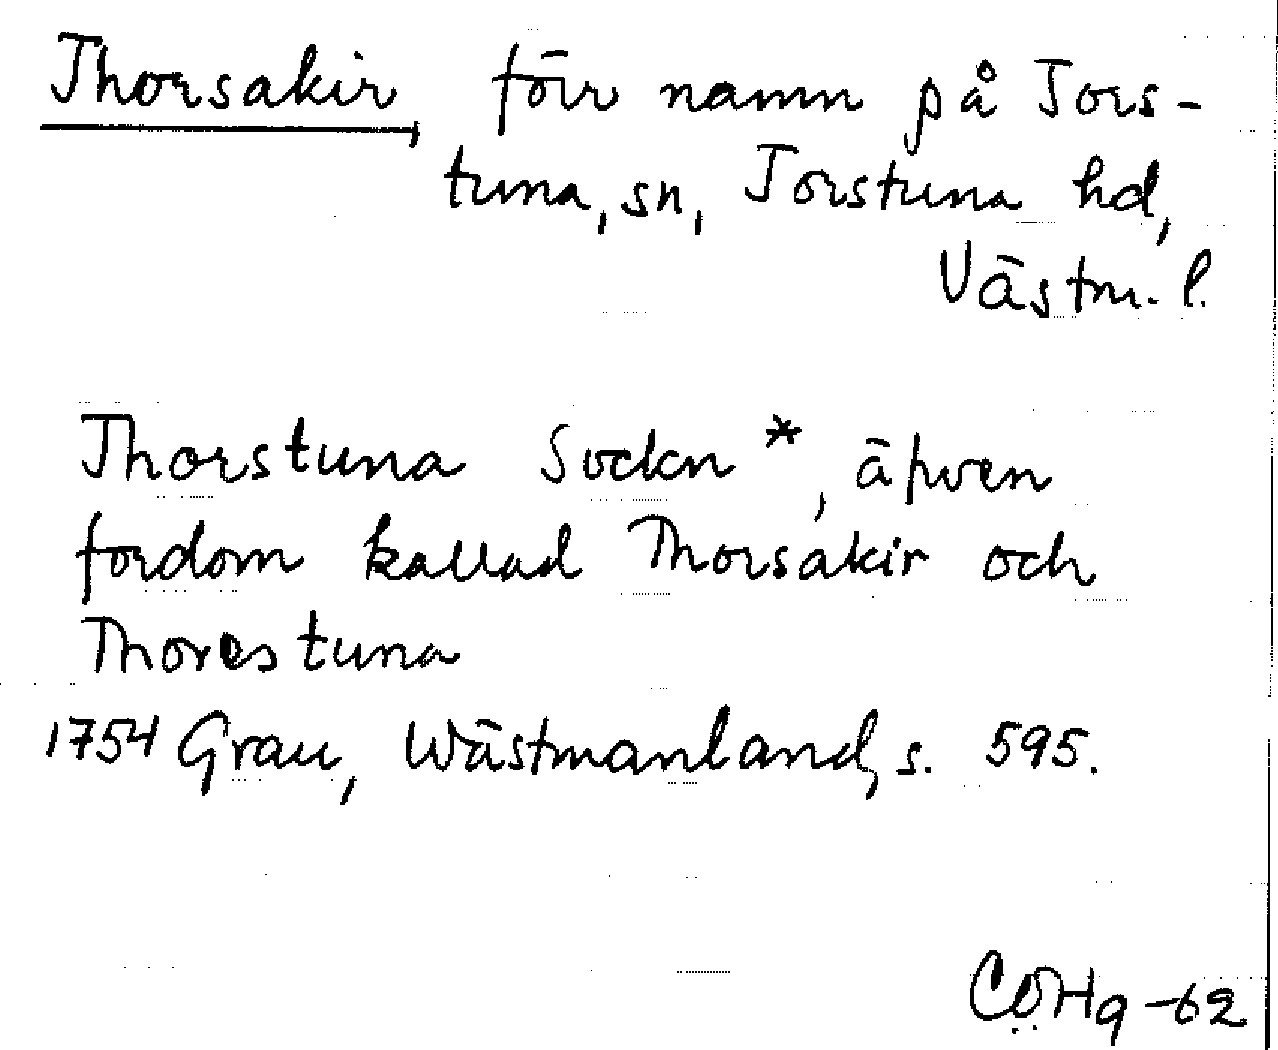 Thorsakir, förr namn på Tors-
tuna, sn, Torstuna hd,
Västm. l.
Thorstuna Sockn *, äfwen
fordom kallad Thorsakir och
Thorestuna
1754 Grau, Wästmanland, s. 595.
CÖHg -62